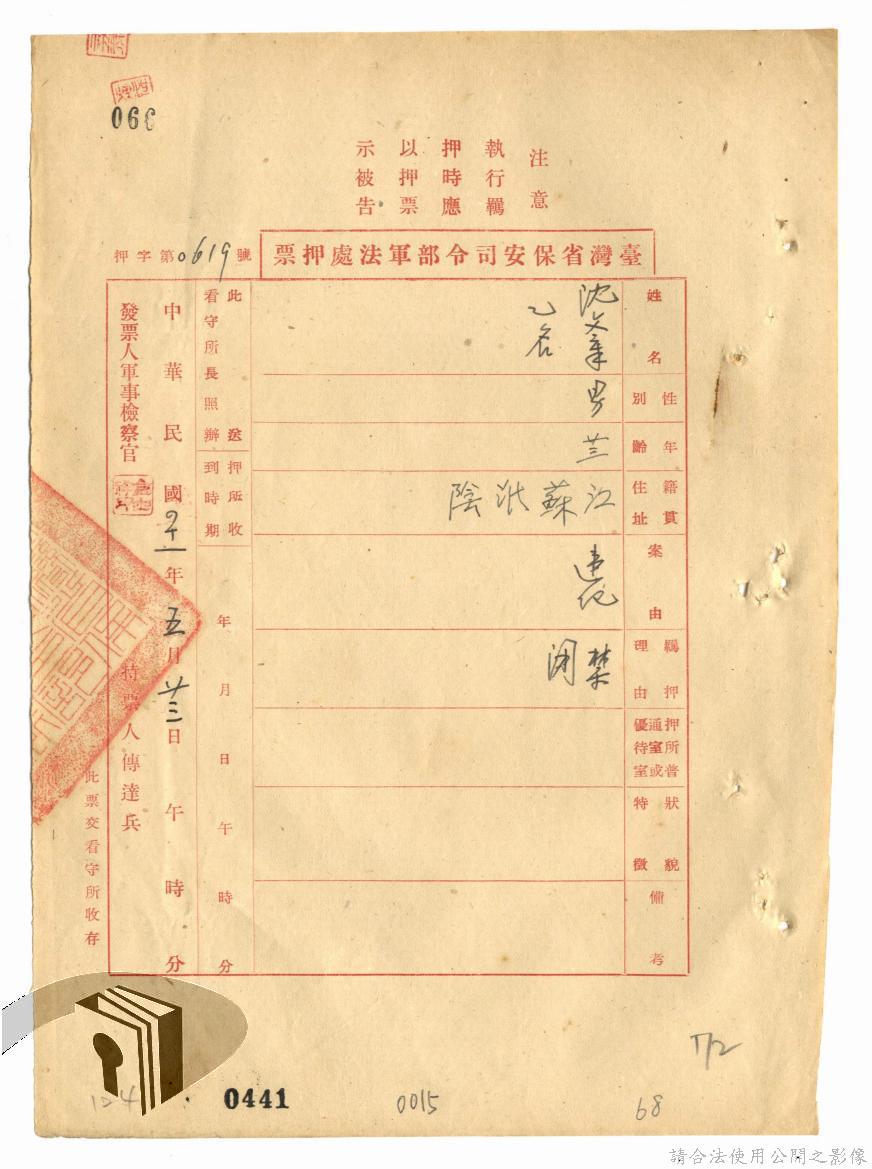 060
注意
執行羈
押時應
以押票
示被告
臺灣省保安司令部軍法處押票
押字第0619號
姓名
沈文
乙名
性別
男
年齡
廿三
籍貫
住址
江蘇
陰
案由
羈押
理由
禁閉
押所普
通室或
優待室
狀貌
特徵
備考
此送
看守所長照辦
押所收
到時期
年月日午時分
中華民國四十一年五月廿三日午時分
發票人軍事檢察官
持票人傳達兵
此票交看守所收存
172
124
0441
0015
68
請合法使用公開之影像